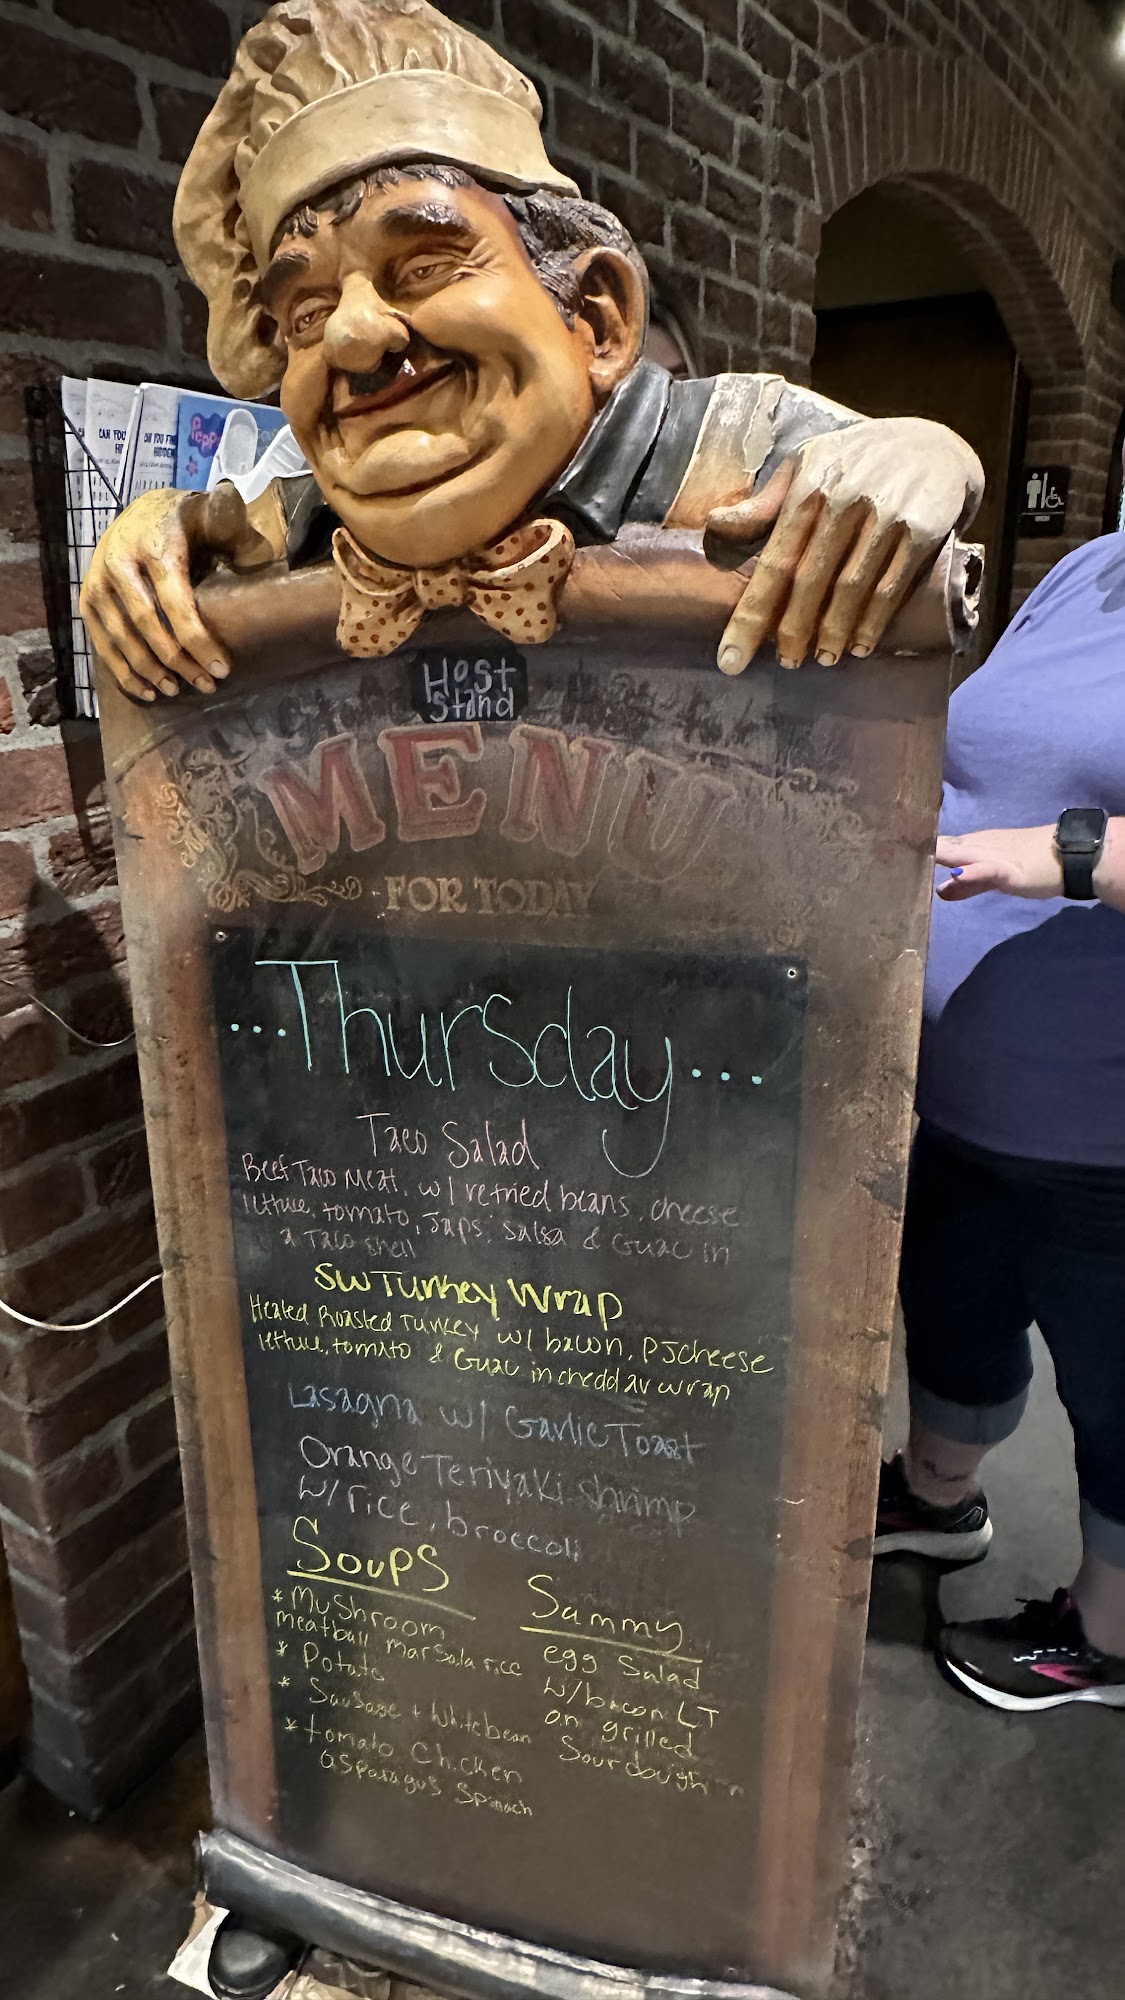 Peppa
Host
Stand
MENU
FOR TODAY
...Thursday...
Taco Salad
Beef Taco Meat, w/ refried beans, cheese
lettuce, tomato, Japs, salsa & Guac in
a Taco shell
SW Turkey Wrap
Heated Roasted Turkey w/ bacon, PJ cheese
lettuce, tomato & Guac in cheddar wrap
Lasagna w/ Garlic Toast
Orange Teriyaki shrimp
w/ rice, broccoli
Soups
* Mushroom
meatball marsala rice
* Potato
* Sausage + White bean
* tomato Chicken
asparagus Spinach
Sammy
egg Salad
w/ bacon LT
on grilled
Sourdough